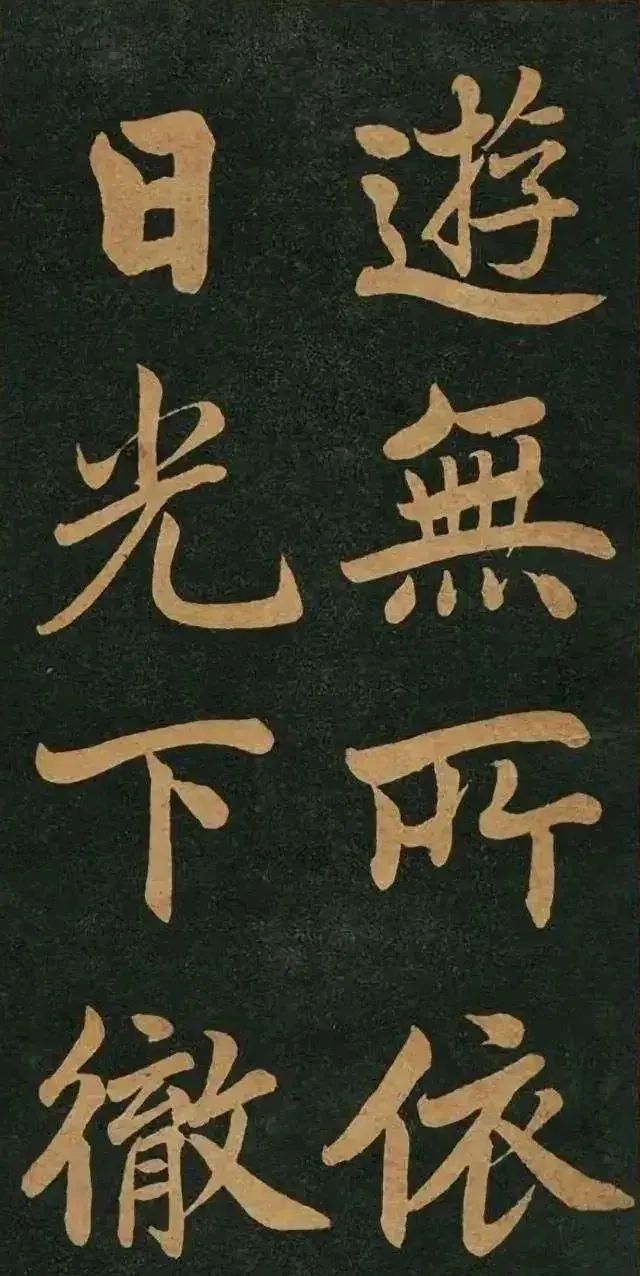 遊無所依
日光下徹